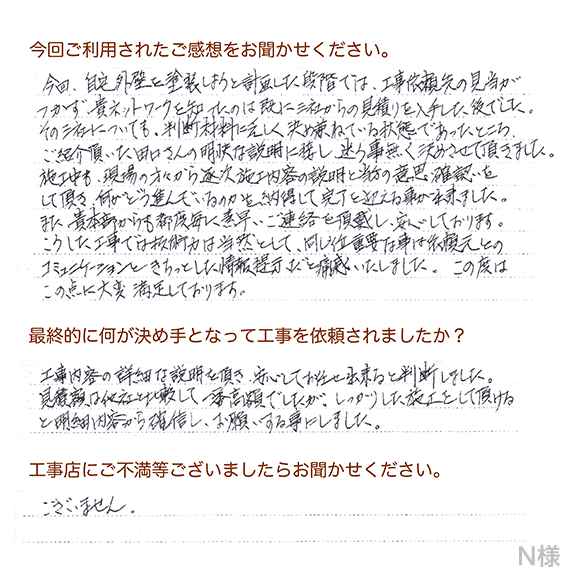 今回ご利用されたご感想をお聞かせください。
今回、自宅外壁を塗装しようと計画した段階では、工事依頼先の見当が
つかず、貴ネットワークを知ったのは既に三社からの見積りを入手した後でした。
その三社についても、判断材料に乏しく決め兼ねている状態であったところ、
ご紹介頂いた田口さんの明快な説明に接し、迷う事無く決めさせて頂きました。
施工中も、現場の方から逐次施工内容の説明と当方の意思確認を
して頂き、何がどう進んでいるのかを納得して完了を迎える事が出来ました。
また、貴本部からも都度毎に素早いご連絡を頂戴し、安心しております。
こうした工事では技術力は当然として、同じ位重要な事は依頼元との
コミュニケーションときちっとした情報提示だと痛感いたしました。この度は
この点に大変満足しております。
最終的に何が決め手となって工事を依頼されましたか？
工事内容の詳細な説明を頂き、安心してお任せ出来ると判断しました。
見積額は他社と比較して一番高額でしたが、しっかりした施工をして頂ける
と明細内容から確信し、お願いする事にしました。
工事店にご不満等ございましたらお聞かせください。
ございません。
N様